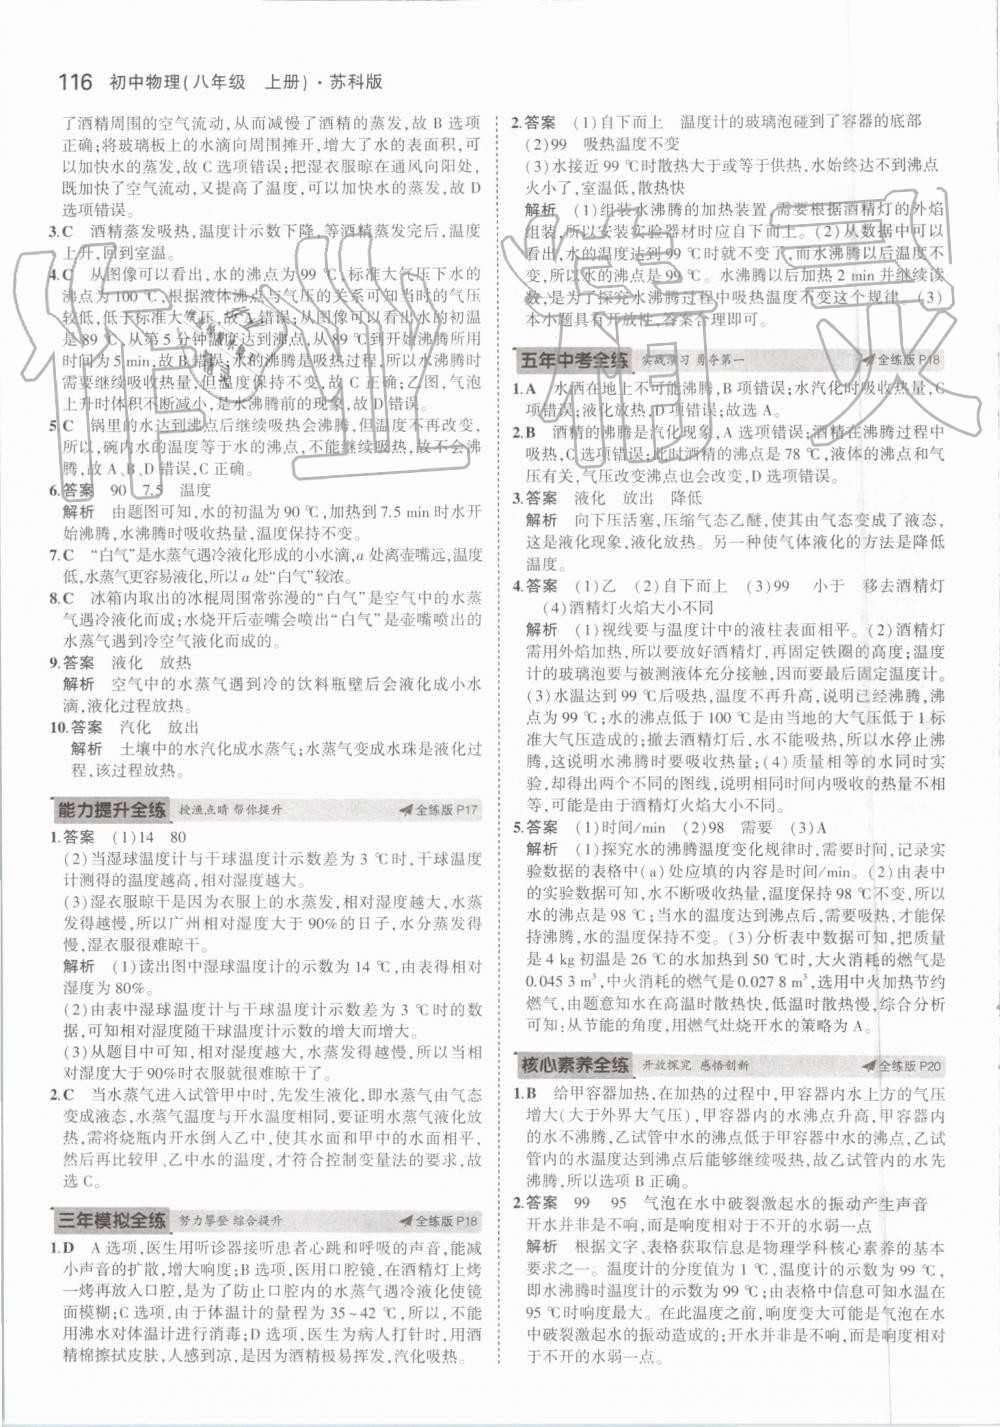 116 初中物理(八年级 上册)·苏科版
了酒精周围的空气流动,从而减慢了酒精的蒸发,故 B 选项
正确;将玻璃板上的水滴向周围摊开,增大了水的表面积,可
以加快水的蒸发,故 C 选项错误;把湿衣服晾在通风向阳处,
既加快了空气流动,又提高了温度,可以加快水的蒸发,故 D
选项错误。
3.C 酒精蒸发吸热,温度计示数下降,等酒精蒸发完后,温度
上升,回到室温。
4.C 从图像可以看出,水的沸点为 99 ℃,标准大气压下水的
沸点为 100 ℃,根据液体沸点与气压的关系可知当时的气压
较低,低于标准大气压,故 A 错误;从图像可以看出水的初温
是 89 ℃,从第 5 分钟温度达到沸点,从 89 ℃到开始沸腾所用
时间为 5 min,故 B 错误;水的沸腾是吸热过程,所以水沸腾时
需要继续吸收热量,但温度保持不变,故 C 正确;乙图,气泡
上升时体积不断减小,是水沸腾前的现象,故 D 错误。
5.C 锅里的水达到沸点后继续吸热会沸腾,但温度保持不变,
所以,碗内水的温度等于水的沸点,不能继续吸热,不能沸
腾,故 A、B、D 错误,C 正确。
6.答案 90 7.5 温度
解析 由题图可知,水的初温为 90 ℃,加热到 7.5 min 时水开
始沸腾,水沸腾时吸收热量,温度保持不变。
7.C “白气”是水蒸气遇冷液化形成的小水滴,a 处离壶嘴远,温度
低,水蒸气更容易液化,所以 a 处“白气”较浓。
8.C 冰箱内取出的冰棍周围常弥漫的“白气”是空气中的水蒸
气遇冷液化而成;水烧开后壶嘴会喷出“白气”是壶嘴喷出的
水蒸气遇到冷空气液化而成的。
9.答案 液化 放热
解析 空气中的水蒸气遇到冷的饮料瓶壁后会液化成小水
滴,液化过程放热。
10.答案 汽化 放出
解析 土壤中的水汽化成水蒸气;水蒸气变成水珠是液化过
程,该过程放热。
能力提升全练 授渔点睛 帮你提升 全练版 P17
1.答案 (1)14 80
(2)当湿球温度计与干球温度计示数差为 3 ℃时,干球温度
计测得的温度越高,相对湿度越大。
(3)湿衣服晾干是因为衣服上的水蒸发,相对湿度越大,蒸
发得越慢,所以广州相对湿度大于 90%的日子,水分蒸发得
慢,湿衣服很难晾干。
解析 (1)读出图中湿球温度计的示数为 14 ℃,由表得相对
湿度为 80%。
(2)由表中湿球温度计与干球温度计示数差为 3 ℃时的数
据,可知相对湿度随干球温度计示数的增大而增大。
(3)从题目中可知,相对湿度越大,衣服蒸发得越慢,所以湿
度大于 90%时衣服很难晾干。
2.C 当水蒸气进入试管甲中时,先发生液化,即水蒸气由气态
变成液态,水蒸气与开水温度相同,要证明水蒸气液化放
热,需将烧瓶内开水倒入乙中,使其水面和甲中的水面相平,
然后再比较甲、乙中水的温度,才符合控制变量法的要求,故
选 C。
三年模拟全练 努力攀登 综合提升 全练版 P18
1.D A 选项,医生用听诊器接听患者心跳和呼吸的声音,能减
小声音的扩散,增大响度;B 选项,医用口腔镜,在酒精灯上烤
一烤再放入口腔,是为了防止口腔内的水蒸气遇冷液化使镜
面模糊;C 选项,由于体温计的量程为 35~42 ℃,所以,不能
用沸水对体温计进行消毒;D 选项,医生为病人打针时,用酒
精棉擦拭皮肤,人感到凉,是因为酒精极易挥发,汽化吸热。
2.答案 (1)自下而上 温度计的玻璃泡碰到了容器的底部
(2)99 吸热温度不变
(3)水接近 99 ℃时散热大于或等于供热,水始终达不到沸点
火小了,室温低,散热快
解析 (1)组装水沸腾的加热装置,需要根据酒精灯的外焰
组装,所以安装实验器材时应自下而上。(2)从数据中可以
看出,水的温度达到 99 ℃时就不变了,而水沸腾以后温度不
变,所以水的沸点是 99 ℃。水沸腾以后加热 2 min 并继续读
数,是为了探究水沸腾过程中吸热温度不变这个规律。(3)
本小题具有开放性,答案合理即可。
五年中考全练 实战演习 勇夺第一 全练版 P18
1.A 水洒在地上不可能沸腾,B 项错误;水汽化时吸收热量,C
项错误;液化放热,D 项错误;故选 A。
2.B 酒精的沸腾是汽化现象,A 选项错误;酒精在沸腾过程中
吸热,C 选项错误;此时酒精的沸点是 78 ℃,液体的沸点和气
压有关,气压改变沸点也会改变,D 选项错误。
3.答案 液化 放出 降低
解析 向下压活塞,压缩气态乙醚,使其由气态变成了液态,
这是液化现象,液化放热。另一种使气体液化的方法是降低
温度。
4.答案 (1)乙 (2)自下而上 (3)99 小于 移去酒精灯
(4)酒精灯火焰大小不同
解析 (1)视线要与温度计中的液柱表面相平。(2)酒精灯
需用外焰加热,所以要放好酒精灯,再固定铁圈的高度;温度
计的玻璃泡要与被测液体充分接触,因而要最后固定温度计。
(3)水温达到 99 ℃后吸热,温度不再升高,说明已经沸腾,沸
点为 99 ℃;水的沸点低于 100 ℃是由当地的大气压低于 1 标
准大气压造成的;撤去酒精灯后,水不能吸热,所以水停止沸
腾,这说明水沸腾时要吸收热量;(4)质量相等的水同时实
验,却得出两个不同的图线,说明相同时间内吸收的热量不同,
可能是由于酒精灯火焰大小不同。
5.答案 (1)时间/min (2)98 需要 (3)A
解析 (1)探究水的沸腾温度变化规律时,需要时间,记录实
验数据的表格中(a)处应填的内容是时间/min。(2)由表中
的实验数据可知,水不断吸收热量,温度保持 98 ℃不变,所以
水的沸点是 98 ℃;当水的温度达到沸点后,需要吸热,才能保
持沸腾,水的温度保持不变。(3)分析表中数据可知,如果质量
是 4 kg 初温是 26 ℃的水加热到 50 ℃时,大火消耗的燃气是
0.045 3 m³,中火消耗的燃气是 0.027 8 m³,选用中火加热节约
燃气,由题意知水在高温时散热快,低温时散热慢,综合分析
可知:从节能的角度,用燃气灶烧开水的策略为 A。
核心素养全练 开放探究 感悟创新 全练版 P20
1.B 给甲容器加热,在加热的过程中,甲容器内水上方的气压
增大(大于外界大气压),甲容器内的水沸点升高,甲容器内
的水不沸腾,乙试管中水的沸点低于甲容器中水的沸点,乙试
管内的水温度达到沸点后能够继续吸热,故乙试管内的水先
沸腾,所以选项 B 正确。
2.答案 99 95 气泡在水中破裂激起水的振动产生声音
开水并非是不响,而是响度与不开的水相比较弱一点
解析 根据文字、表格获取信息是物理学科核心素养的基本
要求之一。温度计的分度值为 1 ℃,温度计的示数为 99 ℃,
即水沸腾时温度计的示数为 99 ℃;由表格中信息可知水温在
95 ℃时响度最大。在此温度之前,响度变大可能是气泡在水
中破裂激起水的振动造成的;开水并非是不响,而是响度相对
于不开的水弱一点。